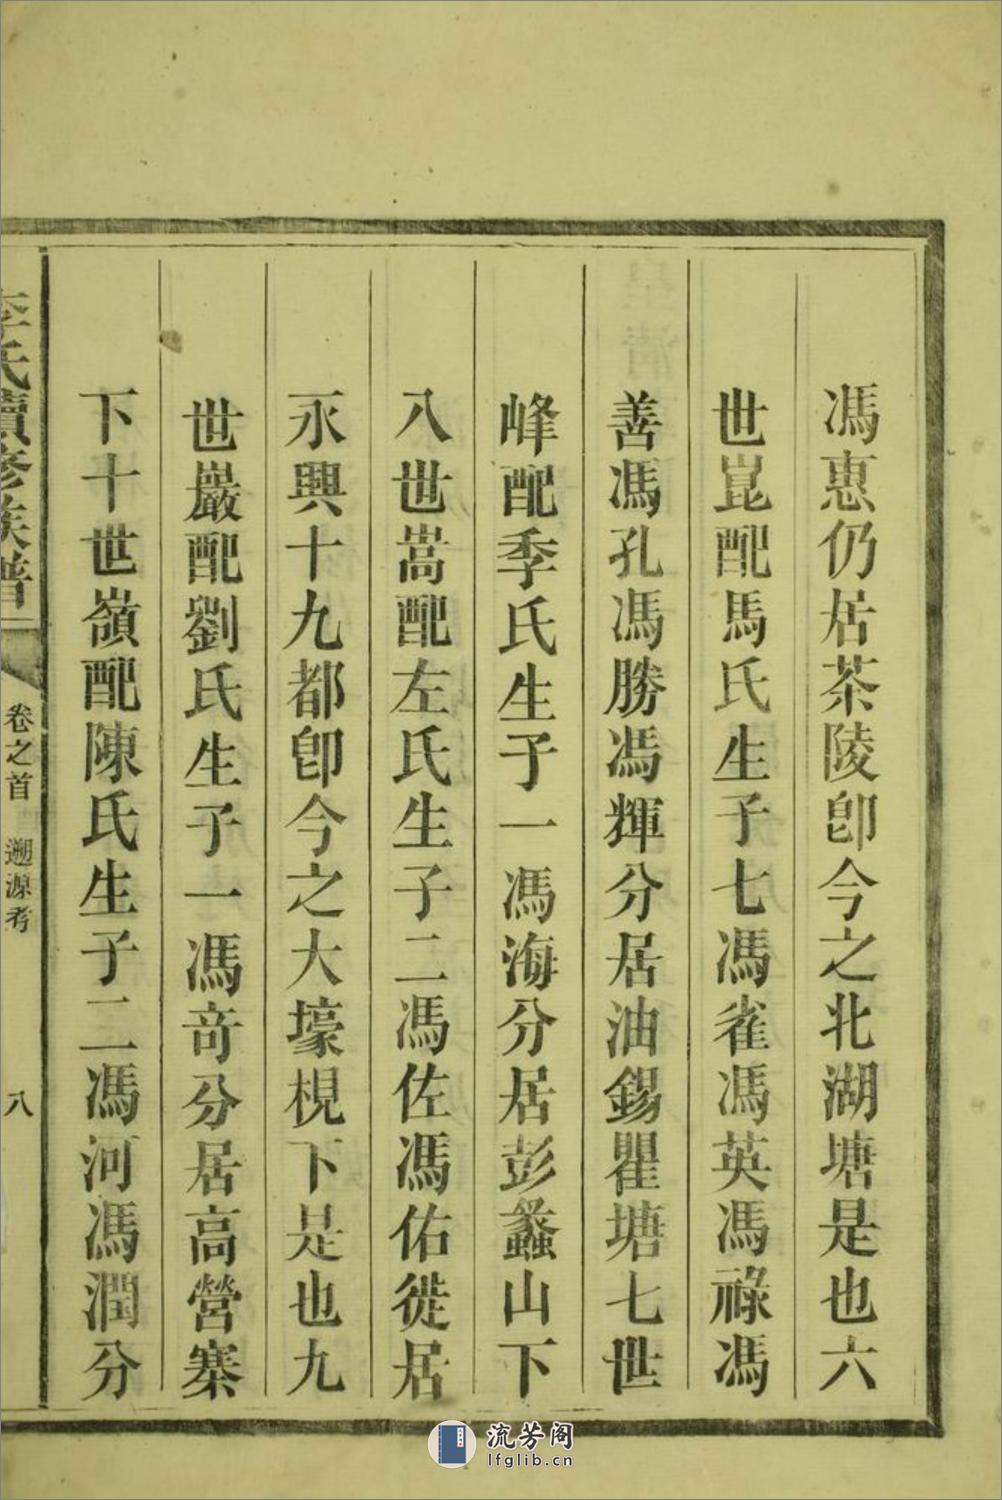 馮惠仍居茶陵卽今之北湖塘是也六
世崑配馬氏生子七馮雀馮英馮祿馮
善馮孔馮勝馮輝分居油錫瞿塘七世
峰配季氏生子一馮海分居彭蠡山下
八世嵩配左氏生子二馮佐馮佑徙居
永興十九都卽今之大壕梘下是也九
世巖配劉氏生子一馮奇分居高營寨
下十世嶺配陳氏生子二馮河馮潤分
李氏續修族譜
卷之首 遡源考
八
流芳阁
lfglib.cn